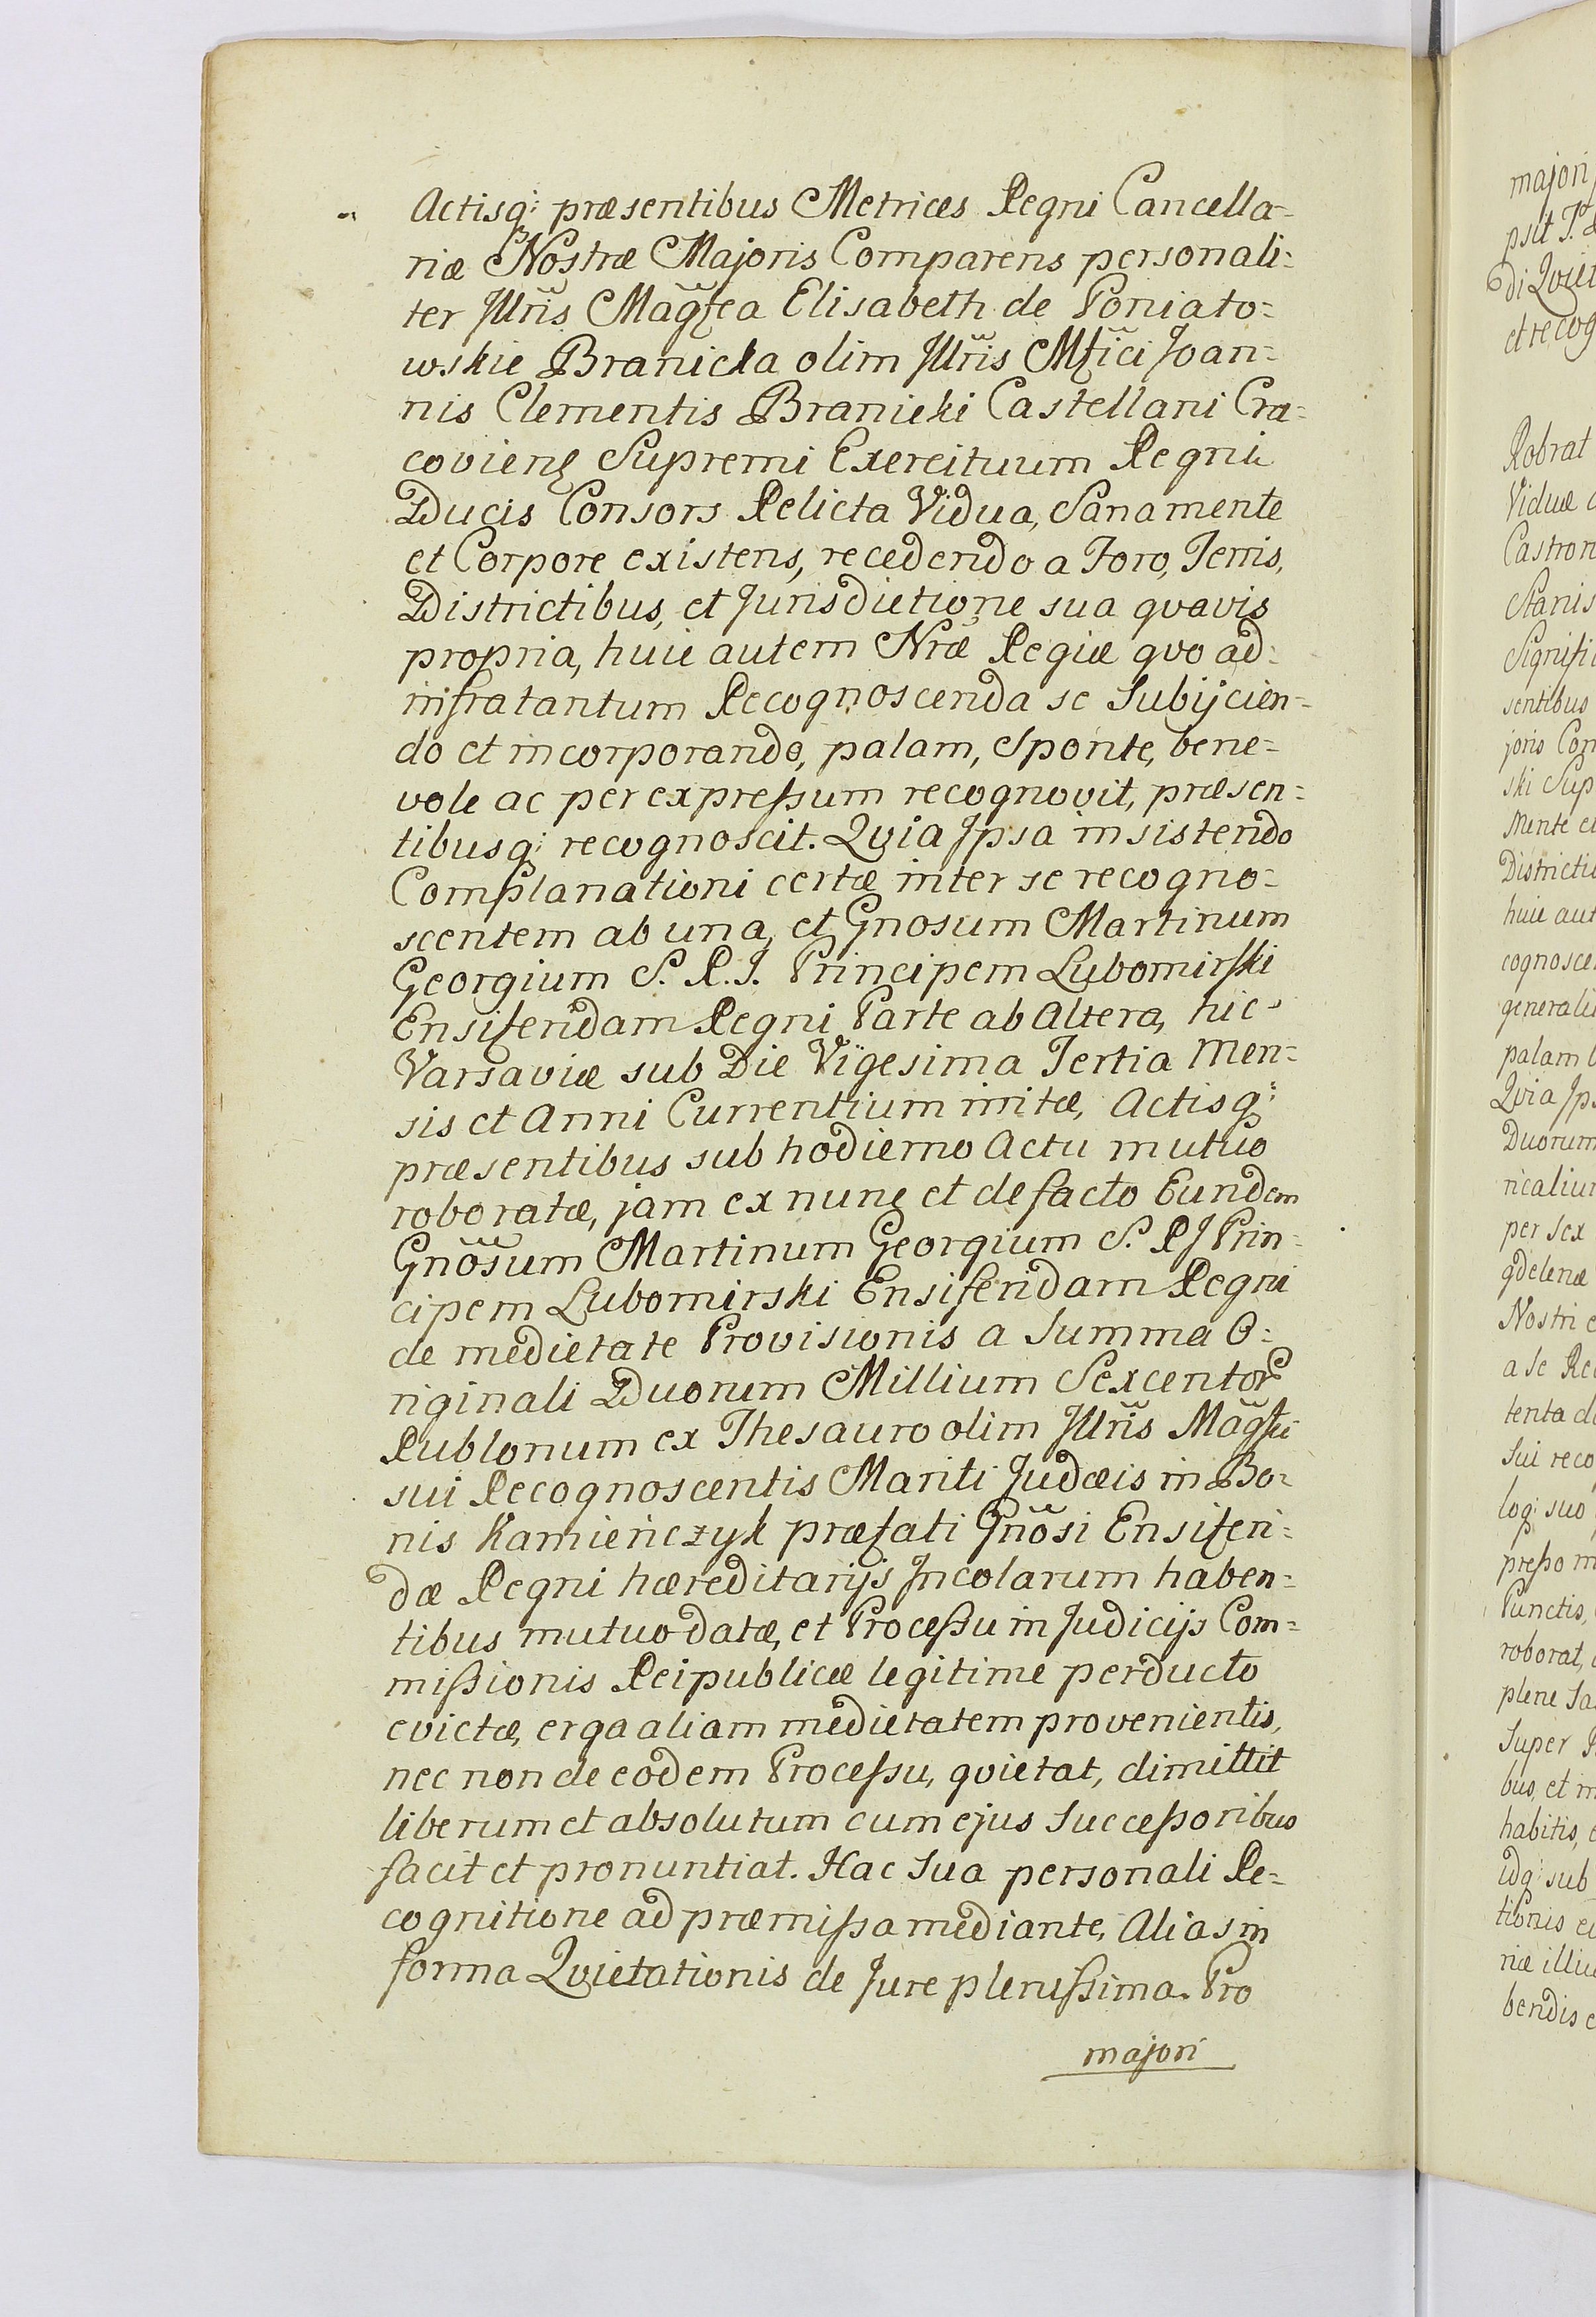 Actisq: præsentibus Metrices Regni Cancella-
riæ Nostræ Majoris Comparens personali:
ter Jllr̃is Mag̃fca Elisabeth de Poniato:
wskie Branicka olim Jllr̃is Mf̃ici Joan:
nis Clementis Branicki Castellani Cra:
coviens Supremi Exercituum Regni
Ducis Consors Relicta Vidua, Sana mente
et Corpore existens, recedendo a Foro, Terris,
Districtibus, et Jurisdictione sua qvavis
propria, huic autem Nr̃æ Regiæ qvo ad
infra tantum Recognoscenda se Subijcien=
do et incorporando, palam, Sponte, bene=
vole ac per expressum recognovit, præsen:
tibusq: recognoscit. Qvia Jpsa insistendo
Complanationi certæ inter se recogno=
scentem ab una, et Gnosum Martinum
Georgium S. R. J. Principem Lubomirski
Ensiferidam Regni Parte ab Altera, hic
Varsaviæ sub Die Vigesima Tertia Men=
sis et Anni Currentium initæ, Actisq:
præsentibus sub hodierno Actu mutuo
roboratæ, jam ex nunc et de facto Eundem
Gno̅sum Martinum Georgium S. R J Prin:
cipem Lubomirski Ensiferidam Regni
de medietate Provisionis a Summa O:
riginali Duorum Millium Sexcentor
Rublonum ex Thesauro olim Jllr̃is Mag̃fci
sui Recognoscentis Mariti Judæis in Bo:
nis Kamieńczyk præfati Gno̅si Ensiferi:
dæ Regni hæreditarijs Jncolarum haben=
tibus mutuo datæ, et Processu in Judicijs Com=
missionis Reipublicæ legitime perducto
evictæ, erga aliam medietatem provenientis,
nec non de eodem Processu, qvietat, dimittit
liberum et absolutum cum ejus Successoribus
facit et pronuntiat. Hac Sua personali Re=
cognitione ad præmissa mediante, Alias in
forma Qvietationis de Jure plenissima. Pro
majori
majori
psit
di Qviet
et recog
Robrat
Viduæ
Castron
Stanis
Signifi
sentibus
joris Com
ski Sup
Mente et
Districti
huic aut
cognosce
generali
palam
Qvia Jps
Duorum
ricaliu
per Sex
gdelenæ
Nostri
a Se Re
tenta
Sui reco
log: suo
presso
Punctis,
roborat,
plene Sa
Super
bus, et
habitis,
idq: sub
tionis
riæ illu
bendis